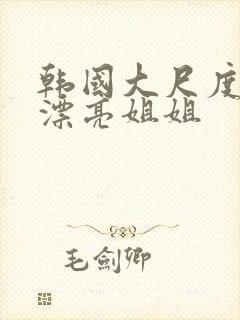 韩國大尺度
漂亮姐姐
毛劍卿